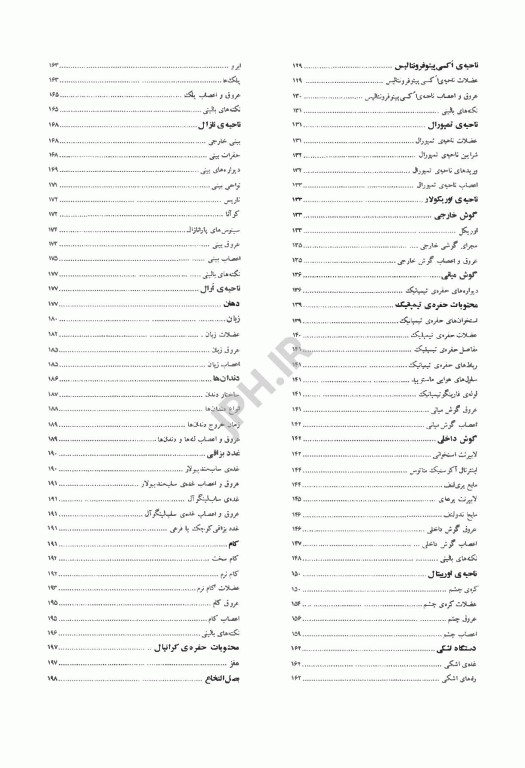 ناحیه‌ی اُکسی‌پیتوفرونتالیس ۱۲۹
عضلات ناحیه‌ی اُکسی‌پیتوفرونتالیس ۱۲۹
عروق و اعصاب ناحیه‌ی اُکسی‌پیتوفرونتالیس ۱۳۰
نکته‌های بالینی ۱۳۱
ناحیه‌ی تمپورال ۱۳۱
عضلات ناحیه‌ی تمپورال ۱۳۱
شرایین ناحیه‌ی تمپورال ۱۳۲
وریدهای ناحیه‌ی تمپورال ۱۳۲
اعصاب ناحیه‌ی تمپورال ۱۳۳
ناحیه‌ی اوریکولار ۱۳۳
گوش خارجی ۱۳۳
اوریکل ۱۳۳
مجرای گوشی خارجی ۱۳۵
عروق و اعصاب گوش خارجی ۱۳۵
گوش میانی ۱۳۶
دیواره‌های حفره‌ی تیمپانیک ۱۳۶
محتویات حفره‌ی تیمپانیک ۱۳۹
استخوان‌های حفره‌ی تیمپانیک ۱۳۹
عضلات حفره‌ی تیمپانیک ۱۴۰
مفاصل حفره‌ی تیمپانیک ۱۴۱
رباط‌های حفره‌ی تیمپانیک ۱۴۱
سلول‌های هوایی ماستویید ۱۴۱
لوله‌ی فارینگوتیمپانیک ۱۴۱
عروق گوش میانی ۱۴۱
اعصاب گوش میانی ۱۴۲
گوش داخلی ۱۴۲
لابیرنت استخوانی ۱۴۲
اینترنال آکوستیک مئاتوس ۱۴۴
مایع پری‌لنف ۱۴۴
لابیرنت پرده‌ای ۱۴۵
مایع اندولنف ۱۴۶
عروق گوش داخلی ۱۴۶
اعصاب گوش داخلی ۱۴۷
نکته‌های بالینی ۱۴۸
ناحیه‌ی اوربیتال ۱۵۰
کره‌ی چشم ۱۵۰
عضلات کره‌ی چشم ۱۵۴
عروق چشم ۱۵۶
اعصاب چشم ۱۵۹
دستگاه اشکی ۱۶۲
غده‌ی اشکی ۱۶۲
راه‌های اشکی ۱۶۲
ابرو ۱۶۳
پلک‌ها ۱۶۳
عروق و اعصاب پلک ۱۶۵
نکته‌های بالینی ۱۶۵
ناحیه‌ی نازال ۱۶۸
بینی خارجی ۱۶۸
حفرات بینی ۱۶۸
دیواره‌های بینی ۱۶۹
نواحی بینی ۱۷۱
ناریس ۱۷۲
کوآنا ۱۷۲
سینوس‌های پارانازال ۱۷۲
عروق بینی ۱۷۳
اعصاب بینی ۱۷۵
نکته‌های بالینی ۱۷۷
ناحیه‌ی اُرال ۱۷۷
دهان ۱۷۷
زبان ۱۸۰
عضلات زبان ۱۸۲
عروق زبان ۱۸۵
اعصاب زبان ۱۸۵
دندان‌ها ۱۸۶
ساختار دندان ۱۸۷
انواع دندان‌ها ۱۸۸
زمان خروج دندان‌ها ۱۸۹
عروق و اعصاب لثه‌ها و دندان‌ها ۱۸۹
غدد بزاقی ۱۹۰
غده‌ی ساب‌مندیبولار ۱۹۰
عروق و اعصاب غده‌ی ساب‌مندیبولار ۱۹۱
غده‌ی ساب‌لینگوآل ۱۹۱
عروق و اعصاب غده‌ی ساب‌لینگوآل ۱۹۱
غدد بزاقی کوچک یا فرعی ۱۹۱
کام ۱۹۱
کام سخت ۱۹۲
کام نرم ۱۹۲
عضلات کام نرم ۱۹۳
عروق کام ۱۹۵
اعصاب کام ۱۹۵
نکته‌های بالینی ۱۹۶
محتویات حفره‌ی کرانیال ۱۹۷
مغز ۱۹۷
بصل‌النخاع ۱۹۸
JPH.IR